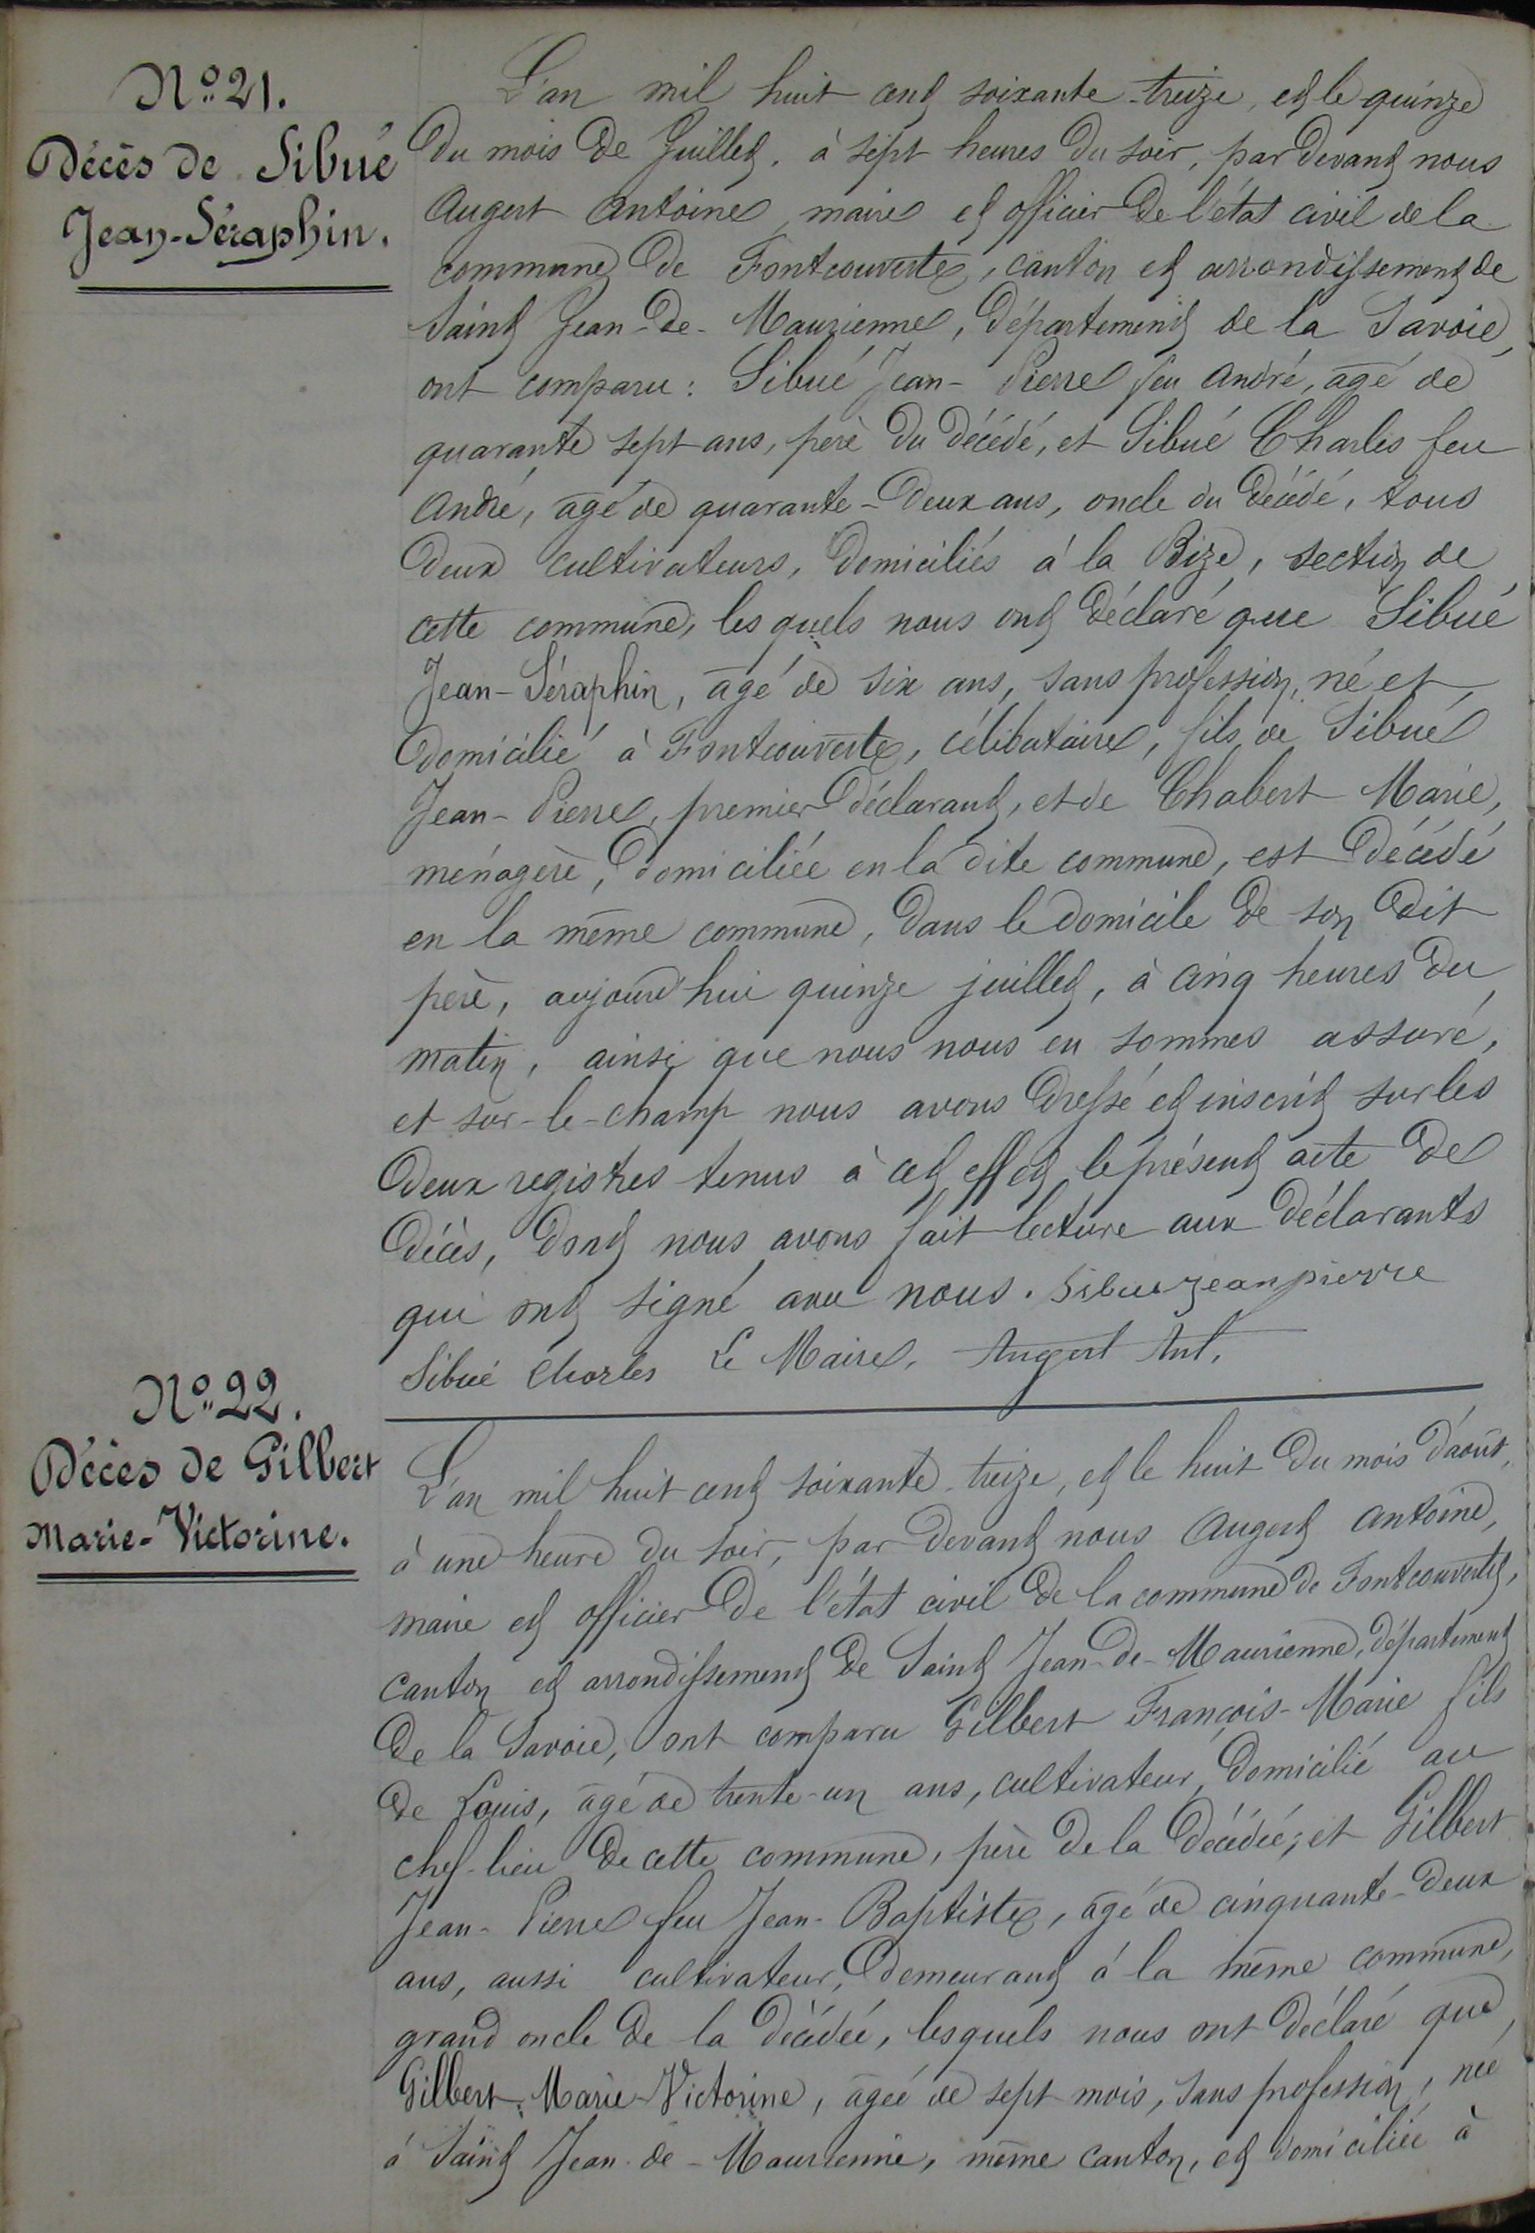 N° 21.
Décès de Sibué
Jean-Séraphin.
L'an mil huit cent soixante-treize, et le quinze
du mois de Juillet, à sept heures du soir, par devant nous
Augert Antoine, maire et officier de l'état civil de la
commune de Fontcouverte, canton et arrondissement de
Saint Jean-de-Maurienne, département de la Savoie,
ont comparu : Sibué Jean-Pierre feu André, âgé de
quarante sept ans, père du décédé, et Sibué Charles feu
André, âgé de quarante-deux ans, oncle du décédé, tous
deux cultivateurs, domiciliés à la Bize, section de
cette commune, les quels nous ont déclaré que Sibué
Jean-Séraphin, âgé de six ans, sans profession, né et
domicilié à Fontcouverte, célibataire, fils de Sibué
Jean-Pierre, premier déclarant, et de Chabert Marie,
ménagère, domiciliée en la dite commune, est décédé
en la même commune, dans le domicile de son dit
père, aujourd'hui quinze juillet, à cinq heures du
matin, ainsi que nous nous en sommes assuré,
et sur-le-champ nous avons dressé et inscrit sur les
deux registres tenus à cet effet le présent acte de
décès, dont nous avons fait lecture aux déclarants
qui ont signé avec nous. Sibue jean pierre
Sibué Charles Le Maire, Augert Ant.
N° 22.
Décès de Gilbert
Marie-Victorine.
L'an mil huit cent soixante-treize, et le huit du mois d'août,
à une heure du soir, par devant nous Augert Antoine,
maire et officier de l'état civil de la commune de Fontcouverte,
canton et arrondissement de Saint Jean-de-Maurienne, département
de la Savoie, ont comparu Gilbert François-Marie fils
de Louis, âgé de trente-un ans, cultivateur, domicilié au
chef-lieu de cette commune, père de la décédée, et Gilbert
Jean-Pierre feu Jean-Baptiste, âgé de cinquante-deux
ans, aussi cultivateur, demeurant à la même commune,
grand oncle de la décédée, lesquels nous ont déclaré que,
Gilbert Marie-Victorine, âgée de sept mois, sans profession, née
à Saint Jean-de-Maurienne, même canton, et domiciliée à